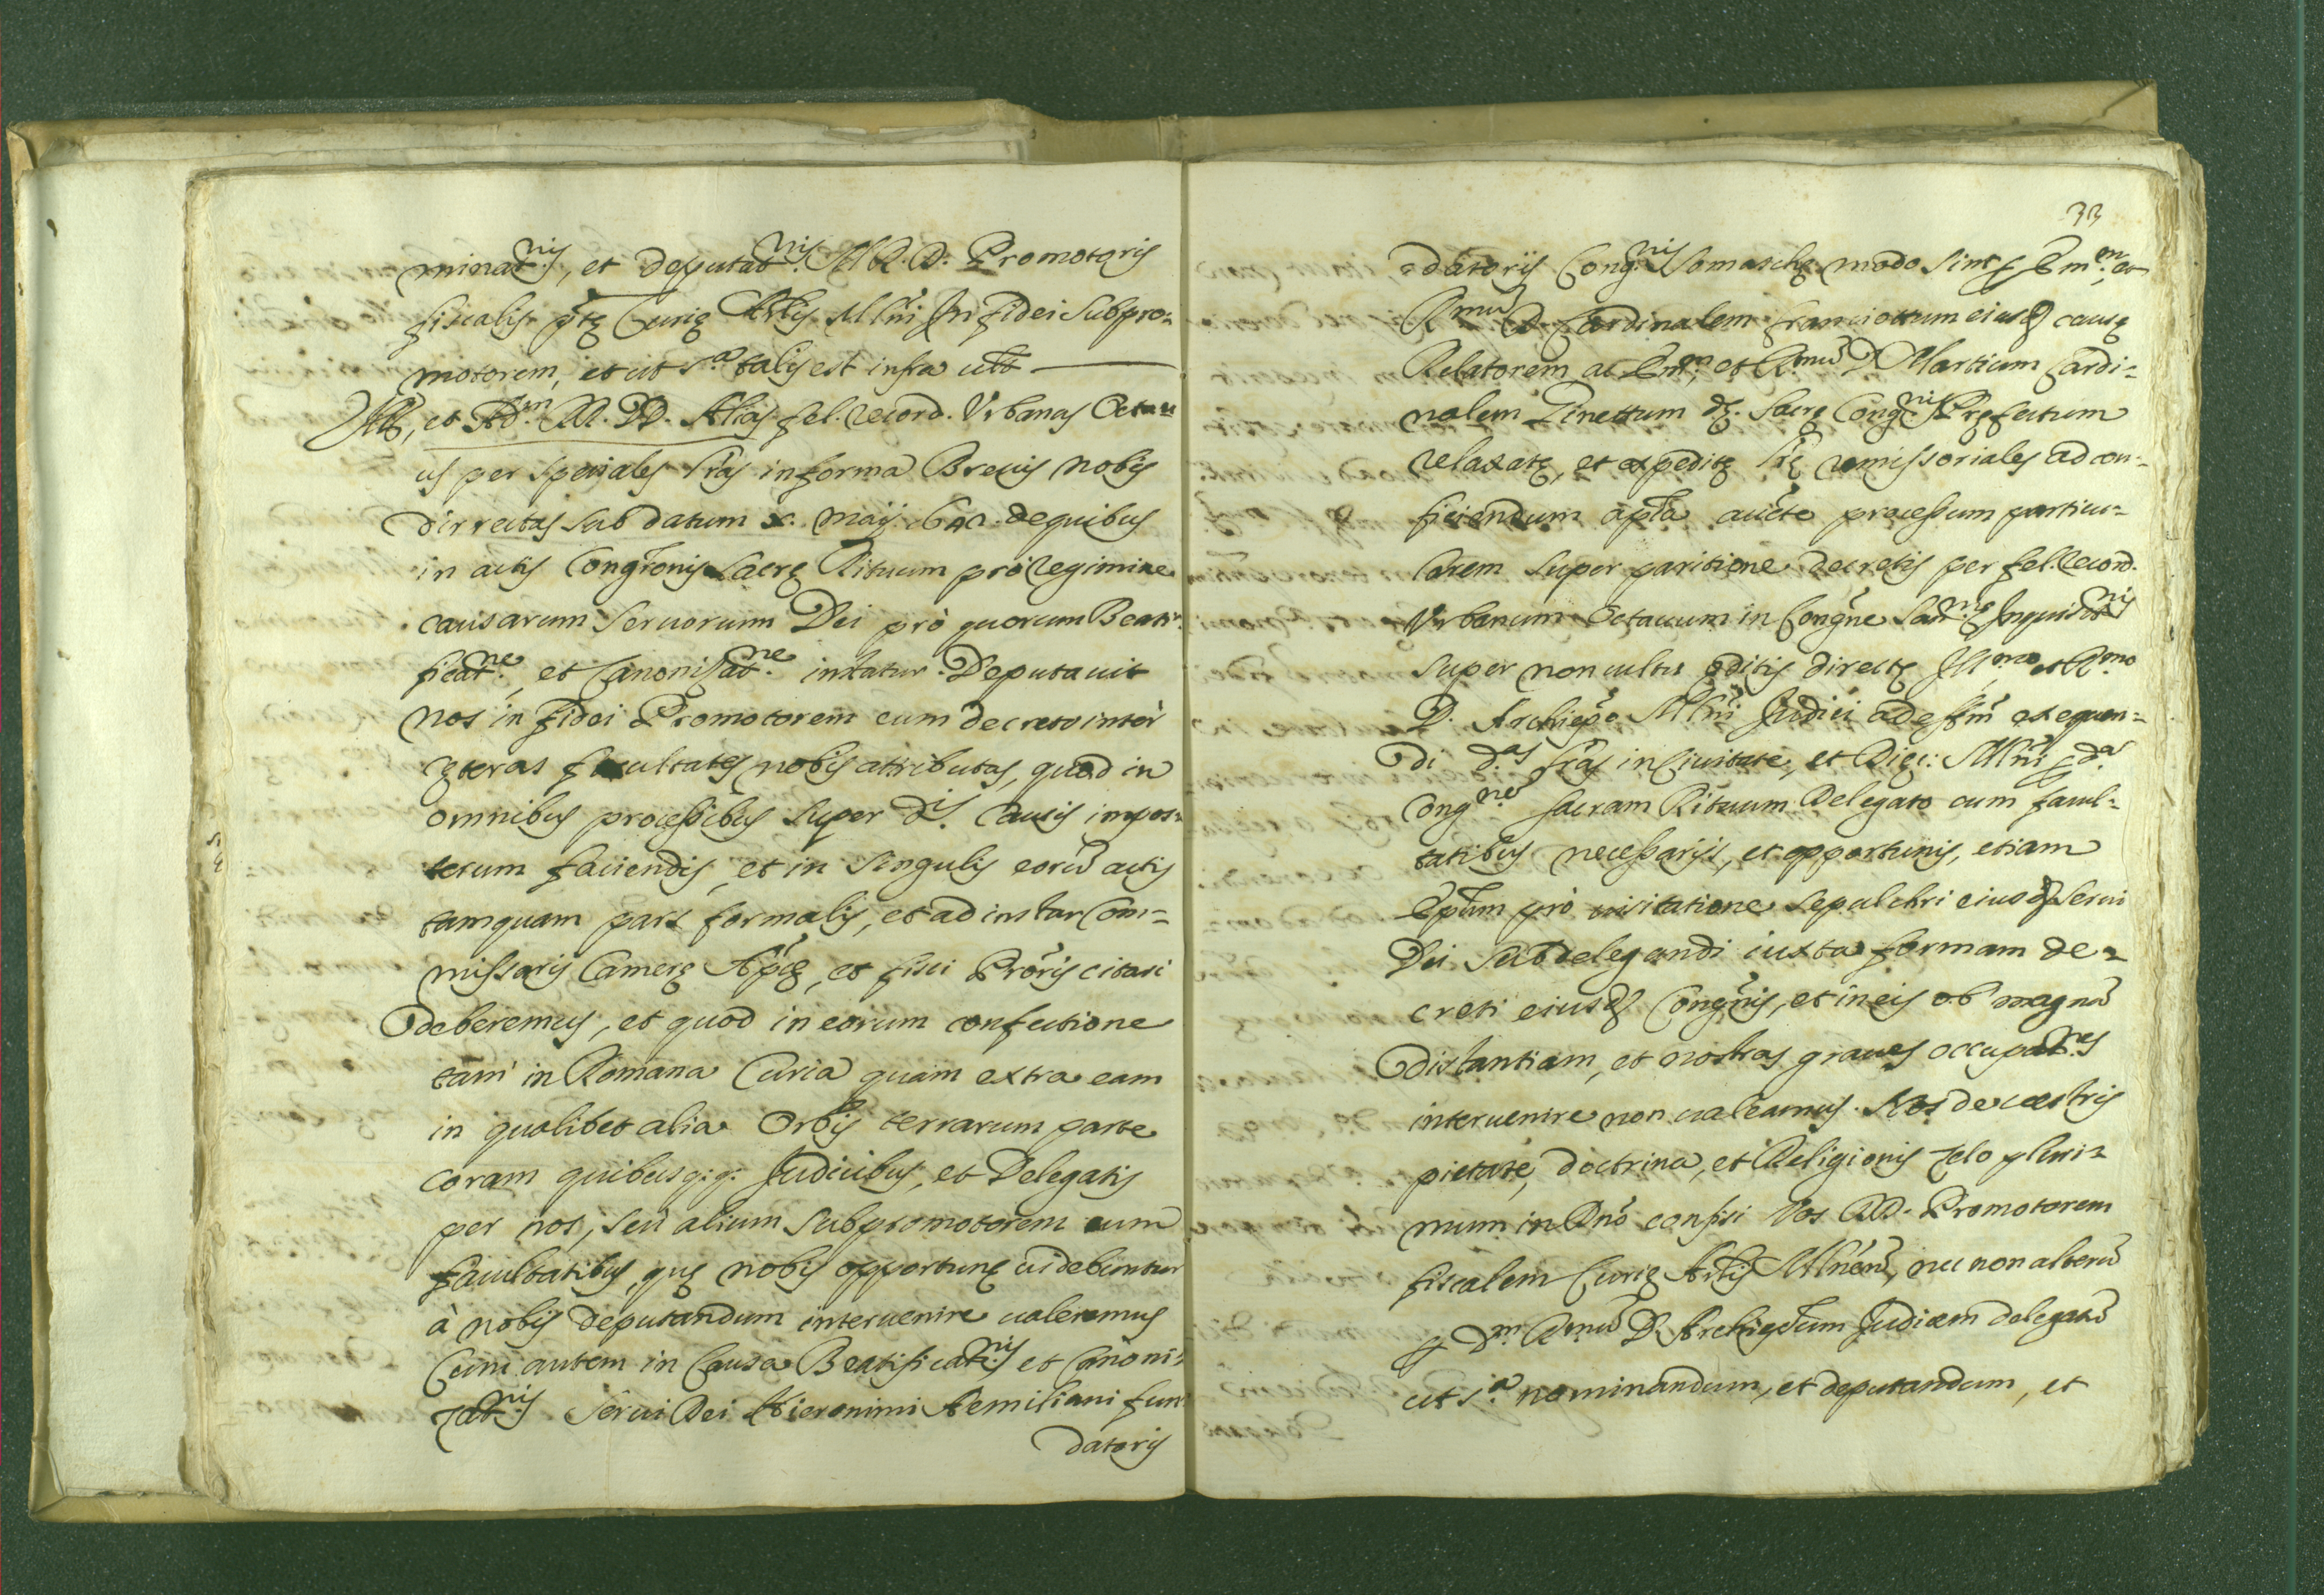 minat.nis, et deputat.nis M. R. D. Promotoris
fiscalis pte Curie Arlis Mlni In fidei Subpro-
motorem, et ut s.a talis est infra ult
Ill., et Ad.m R. DD. Alias fel. record. Urbanus Octau
us per speciales lras in forma Breuis nobis
dirrectas sub datum x. maij 642. de quibus
in actis Congronis Sacre Rituum pro regimine
causarum Seruorum Dei prò quorum Beati-
ficat.ne, et Canonisat.ne instatur. Deputauit
nos in fidei Promotorem cum decreto inter
ceteras facultates nobis attributas, quod in
omnibus processibus super d.is causis impos-
terum faciendis, et in singulis eorū actis
tamquam pars formalis, et ad instar Com-
missarij Camere Aplice, et fisci Proris citari
deberemus, et quod in eorum confectione
tam in Romana Curia quàm extra eam
in qualibet alia Orbis terrarum parte
coram quibusq.q. Judicibus, et Delegatis
per nos, seu alium subpromotorem cum
facultatibus, que nobis opportune uidebuntur
à nobis deputandum interuenire ualeremus
Cum autem in Causa Beatificat.nis et Canoni-
zat.nis Serui Dei Hieronimi Aemiliani fun-
datoris
33
datorijs Cong.nis Somasche modo sint p Em.m, et
R.mū D. Cardinalem Franciottum eiusd cause
Relatorem ac Em.m, et R.mū D. Martium Cardi-
nalem Ginettum d. Sacre Cong.nis Prefectum
relaxate, et expedite lre remissoriales ad con-
ficiendum apla aucte processum particu-
larem super paritione decretis per fel. record.
Urbanum Octauum in Congne San.me Inquisit.nis
super non cultu editis directe Ill.mo et R.mo
D. Archiepo Mlni Judici ad effm exequen-
di d.as lras in Ciuitate, et Diec: Mlni p d.a
Cong.ne Sacram Rituum Delegato cum facul-
tatibus necessarijs, et opportunis, etiam
Eptum prò uisitatione sepulchri eiusd Serui
Dei subdelegandi iuxta formam de-
creti eiusd Congnis, et in eis ob magnā
distantiam, et nostras graues occupat.nes
interuenire non ualeamus. Nos de uestris
pietate, doctrina, et Religionis zelo pluri-
mum in Dno confisi Vos RD. Promotorem
fiscalem Curie Arlis Mlnen, nec non alterū
p D.m R.mū D. Archiepum Judicem delegatū
ut s.a nominandum, et deputandum, et